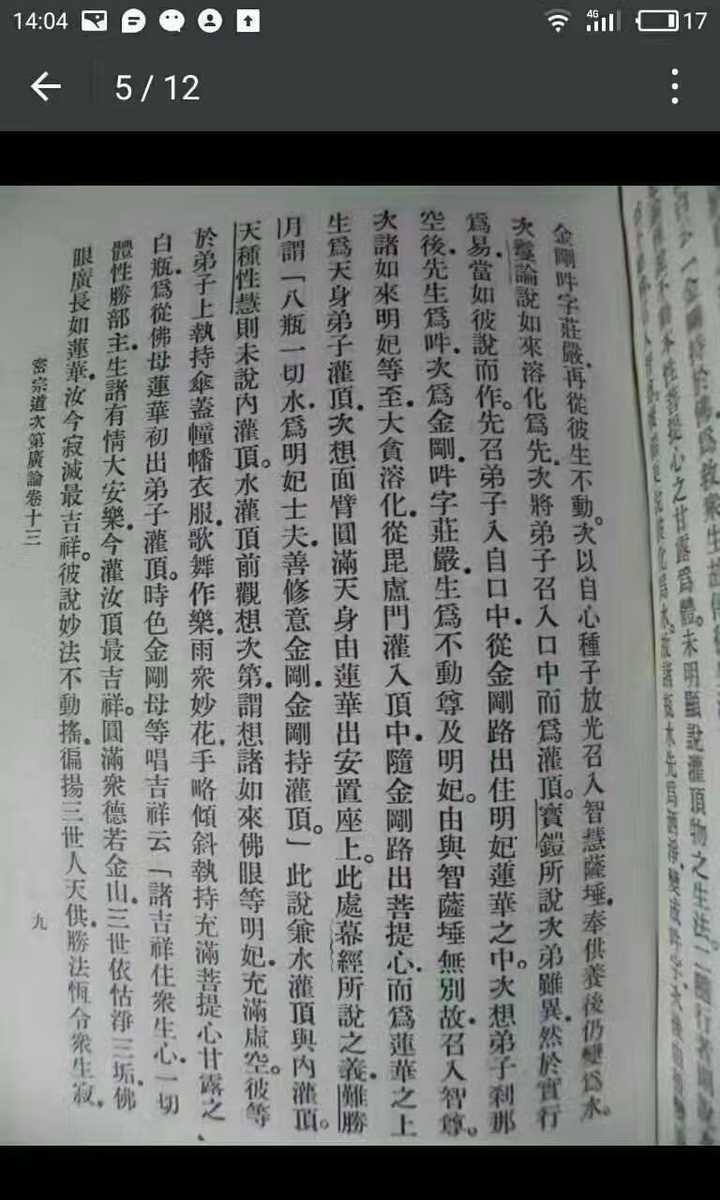 14:04
4G
17
5 / 12
金剛吽字莊嚴，再從彼生不動。次以自心種子放光召入智慧薩埵，奉供養後仍變爲水。
次鬘論說如來溶化爲先，次將弟子召入口中而爲灌頂。寶鎧所說次弟雖異，然於實行
爲易，當如彼說而作。先召弟子入自口中，從金剛路出住明妃蓮華之中。次想弟子剎那
空後，先生爲吽，次爲金剛，吽字莊嚴，生爲不動尊及明妃。由與智薩埵無別故，召入智尊。
次諸如來明妃等至，大貪溶化，從毘盧門灌入頂中，隨金剛路出菩提心，而爲蓮華之上
生爲天身弟子灌頂。次想面臂圓滿天身由蓮華出安置座上。此處幕經所說之義，難勝
月謂「八瓶一切水，爲明妃士夫，善修意金剛，金剛持灌頂。」此說兼水灌頂與內灌頂。
天種性慧則未說內灌頂。水灌頂前觀想次第，謂想諸如來佛眼等明妃，充滿虛空。彼等
於弟子上執持傘蓋幢幡衣服，歌舞作樂，雨衆妙花，手略傾斜執持充滿菩提心甘露之
白瓶，爲從佛母蓮華初出弟子灌頂。時色金剛母等唱吉祥云「諸吉祥住衆生心，一切
體性勝部主，生諸有情大安樂，今灌汝頂最吉祥。圓滿衆德若金山，三世依怙淨三垢，佛
眼廣長如蓮華，汝今寂滅最吉祥。彼說妙法不動搖，徧揚三世人天供，勝法恆令衆生寂，
密宗道次第廣論卷十三
九